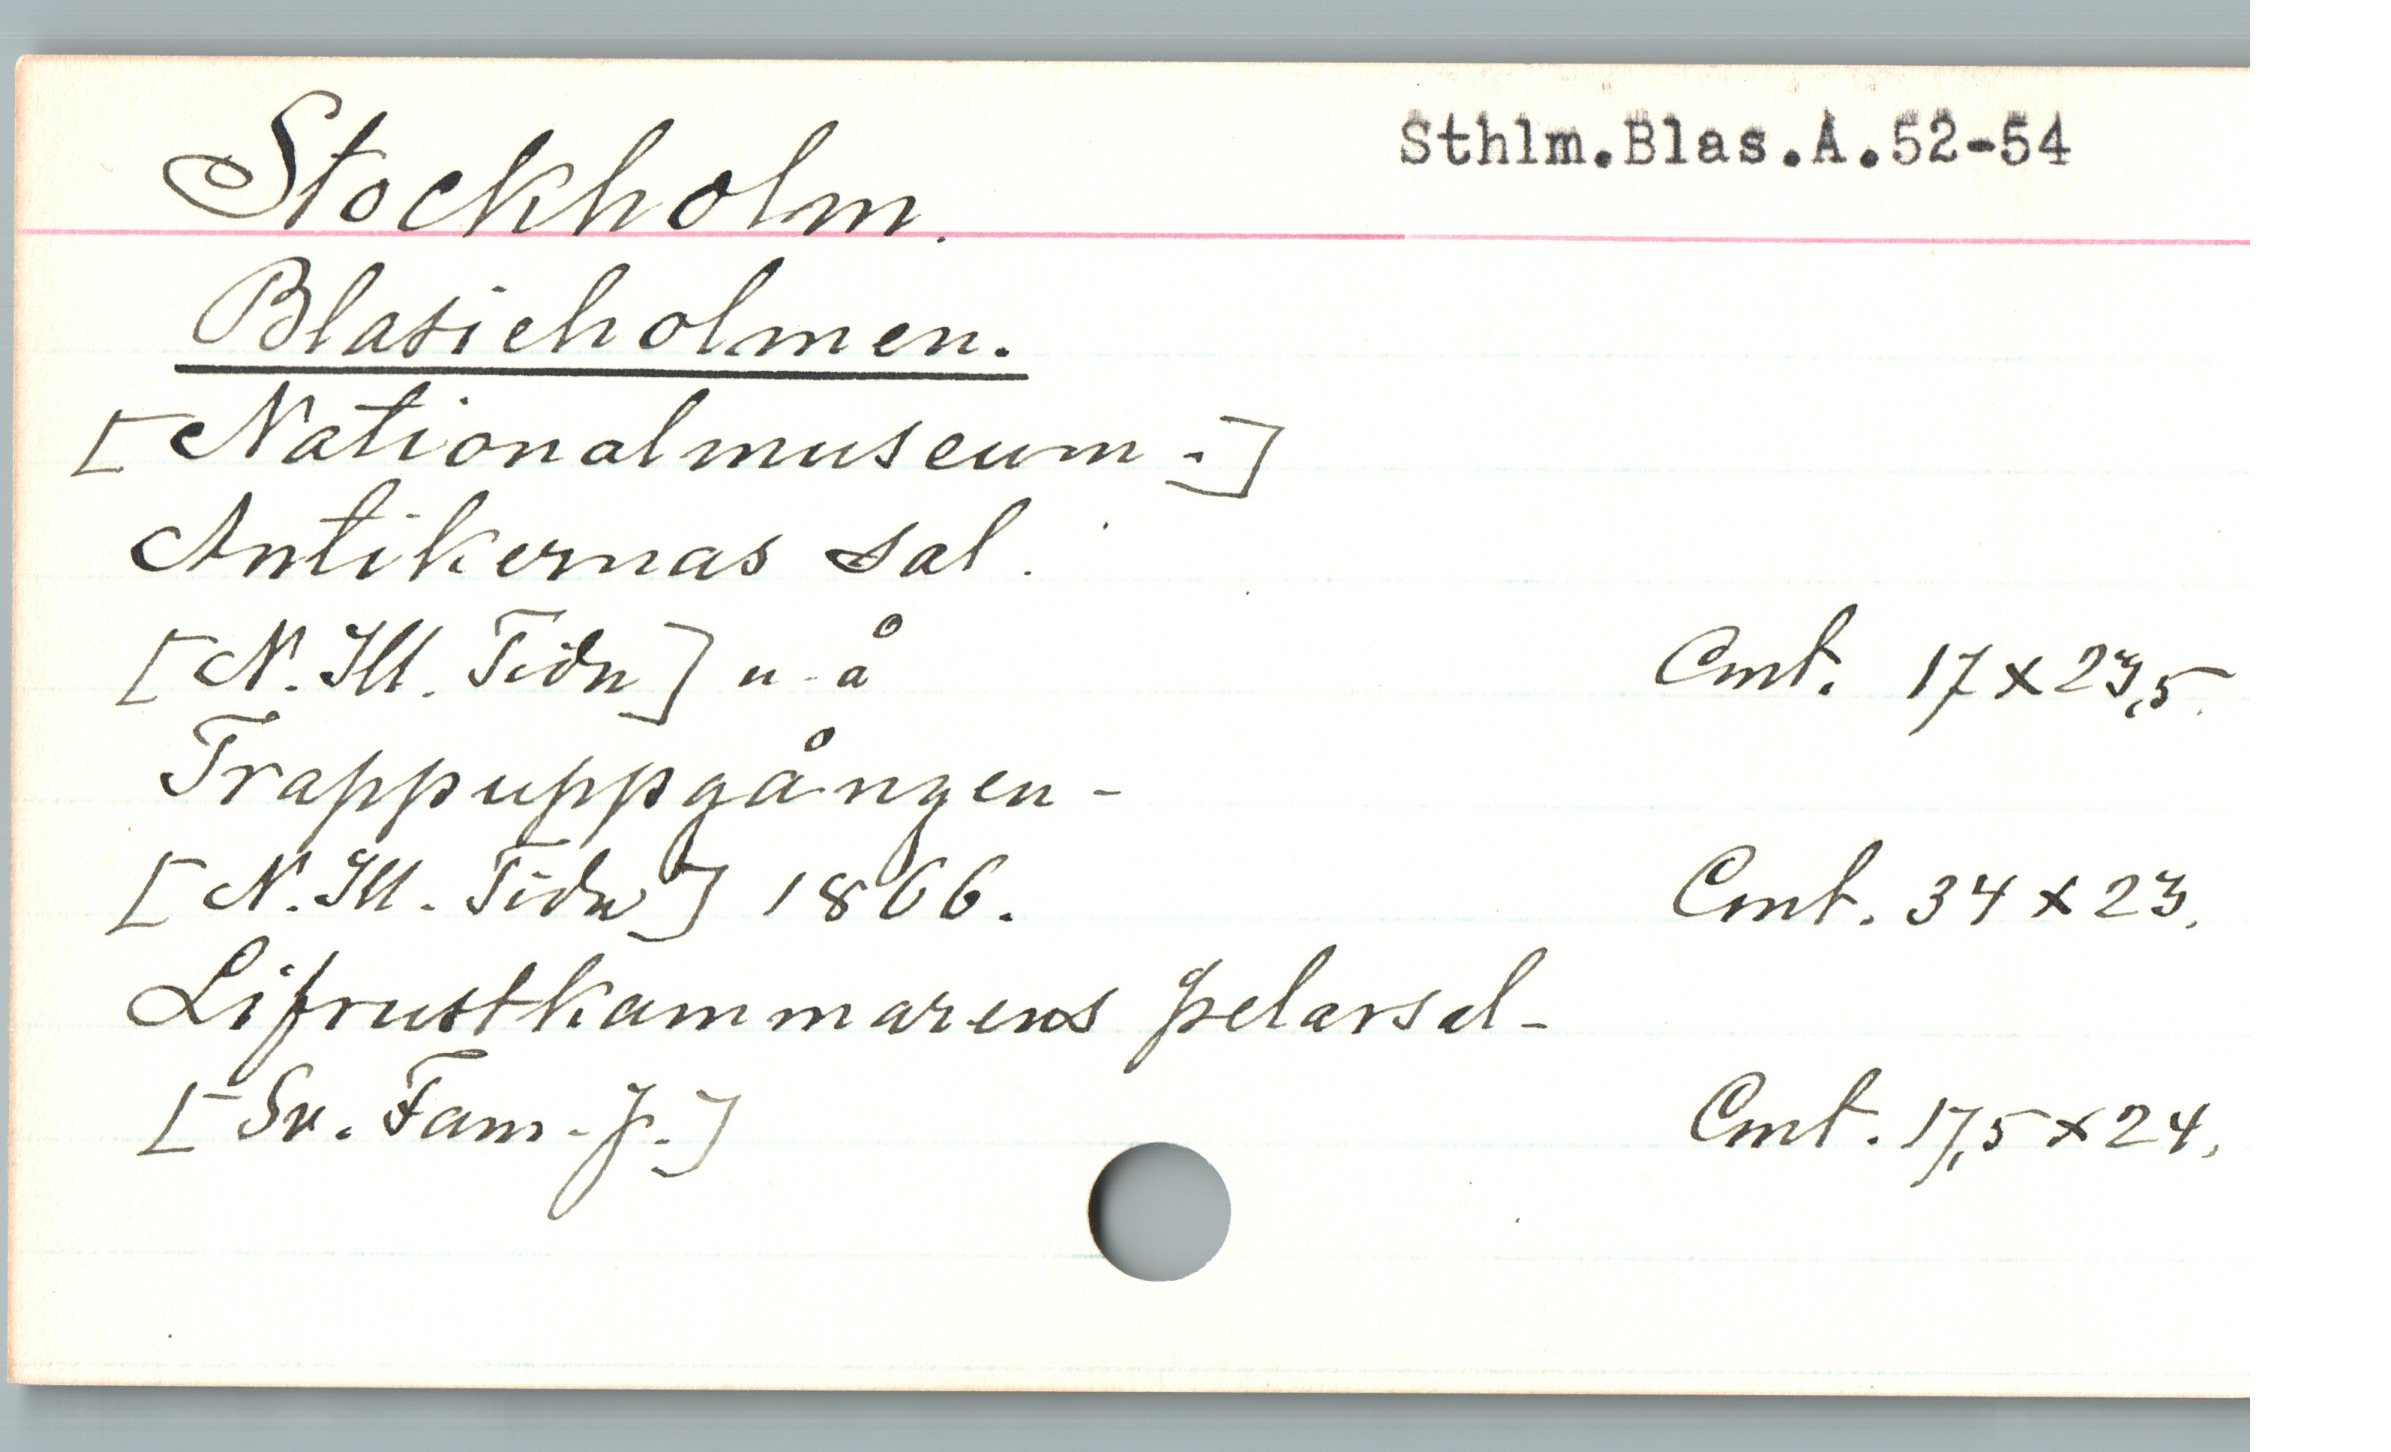 Stockholm. Sthlm.Blas.A.52-54
Blasieholmen.
[Nationalmuseum.]
Antikernas sal.
[N. Ill. Tidn] u. å Cmt. 17 x 23,5.
Trappuppgången.
[N. Ill. Tidn] 1866. Cmt. 34 x 23.
Lifrustkammarens pelarsal.
[Sv. Fam. J.] Cmt. 17,5 x 24.